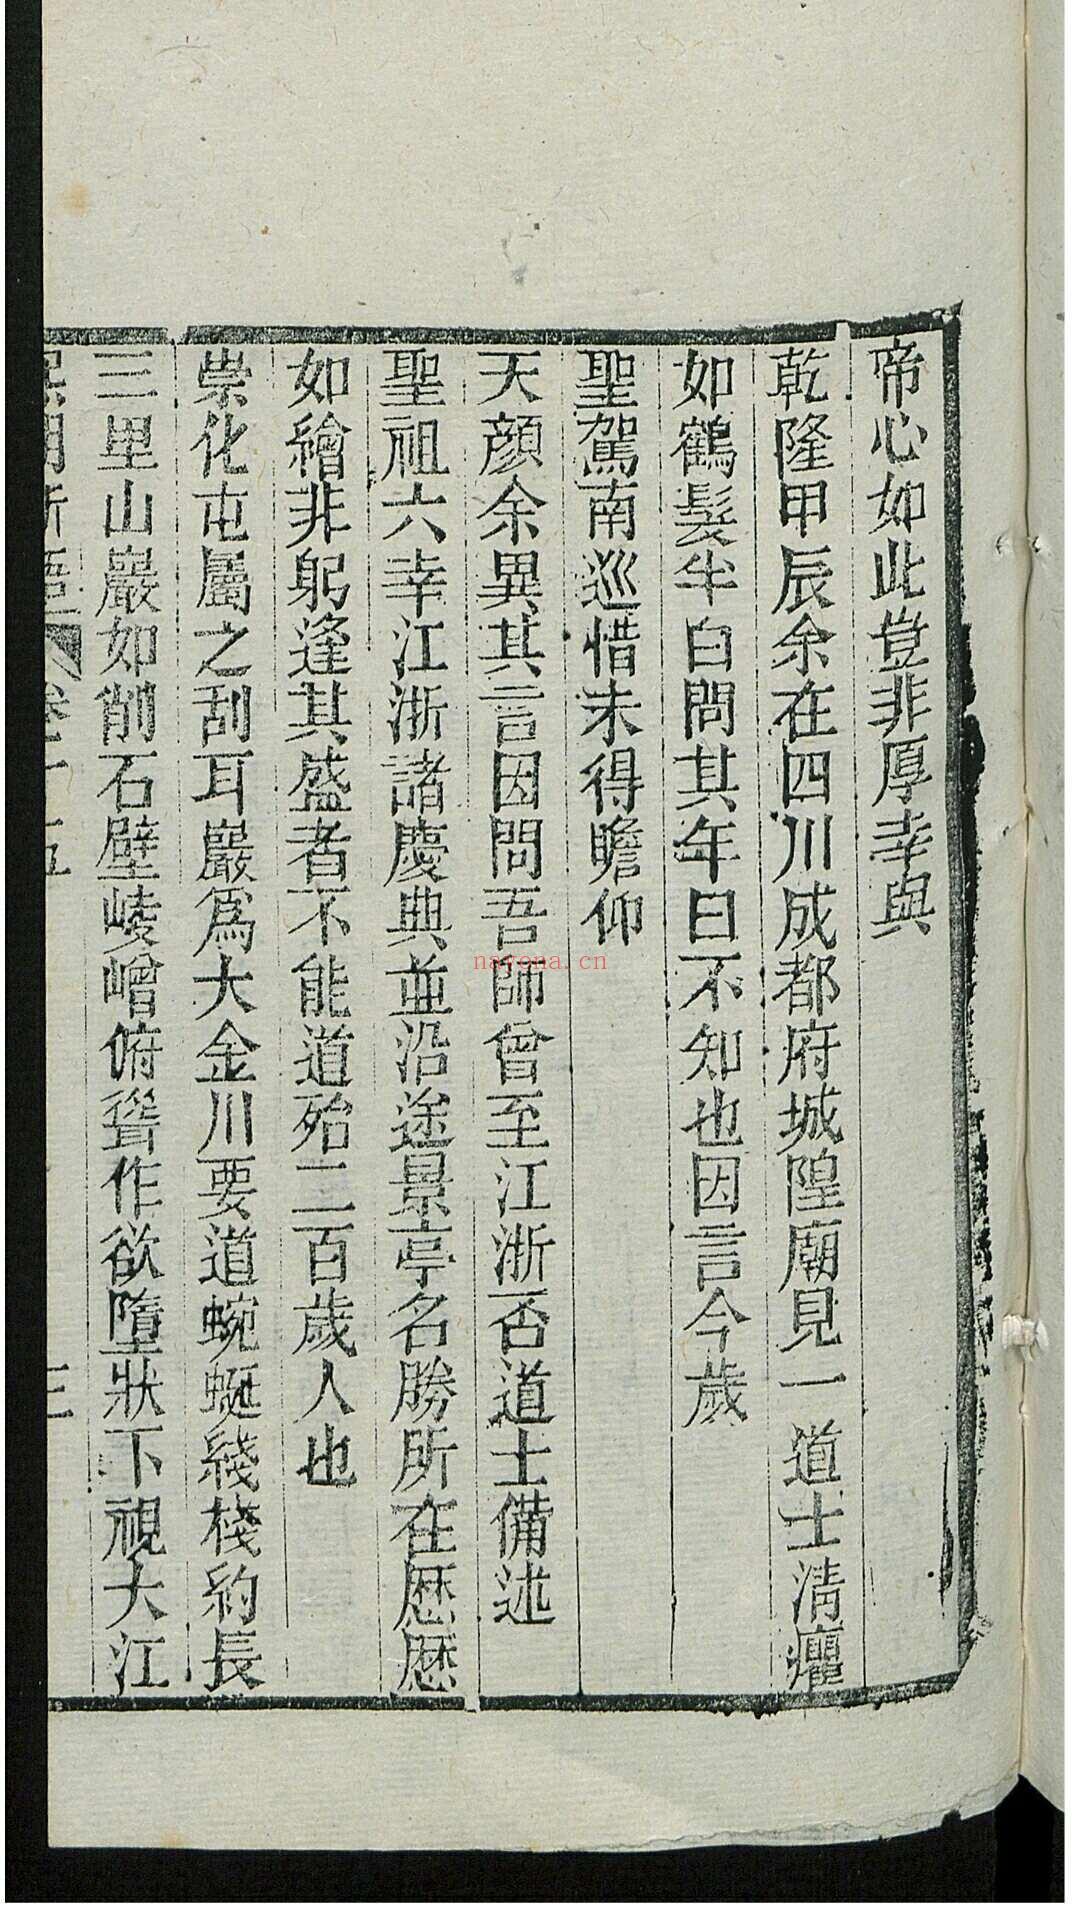 帝心如此豈非厚幸與
乾隆甲辰余在四川成都府城隍廟見一道士清癯
如鶴髮半白問其年曰不知也因言今歲
聖駕南巡惜未得瞻仰
天顏余異其言因問吾師曾至江浙否道士備述
聖祖六幸江浙諸慶典並沿途景亭名勝所在歷歷
如繪非躬逢其盛者不能道殆二百歲人也
崇化屯屬之刮耳巖為大金川要道蜿蜒綫棧約長
三里山巖如削石壁崚嶒俯聳作欲墮狀下視大江
nayona.cn